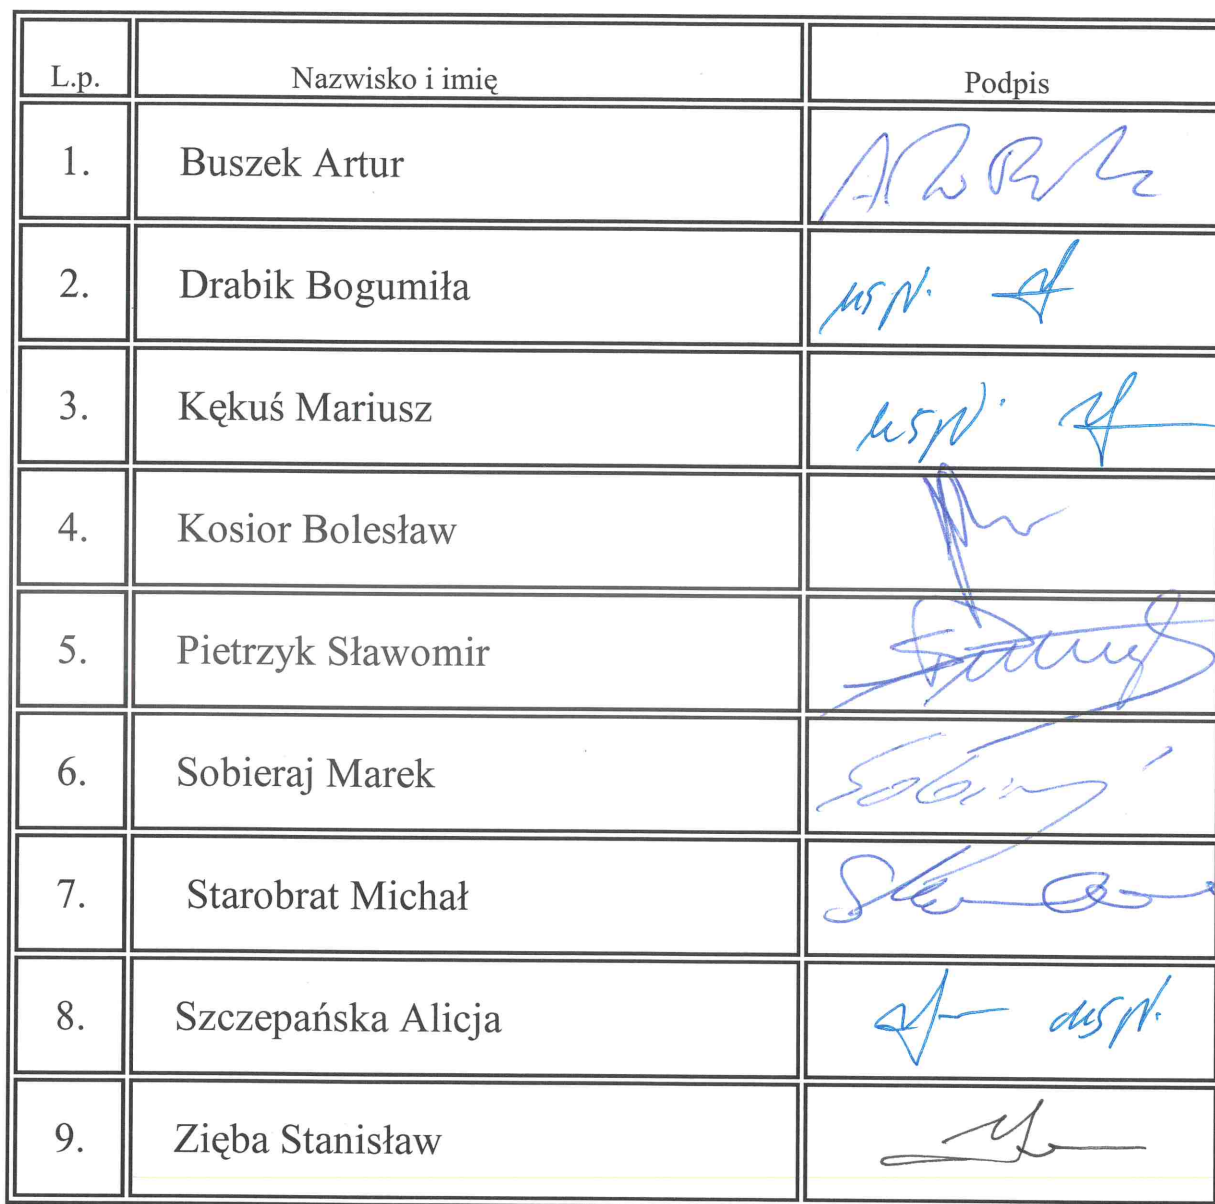 L.p. Nazwisko i imię Podpis
1. Buszek Artur
2. Drabik Bogumiła uspr.
3. Kękuś Mariusz uspr.
4. Kosior Bolesław
5. Pietrzyk Sławomir
6. Sobieraj Marek
7. Starobrat Michał
8. Szczepańska Alicja uspr.
9. Zięba Stanisław